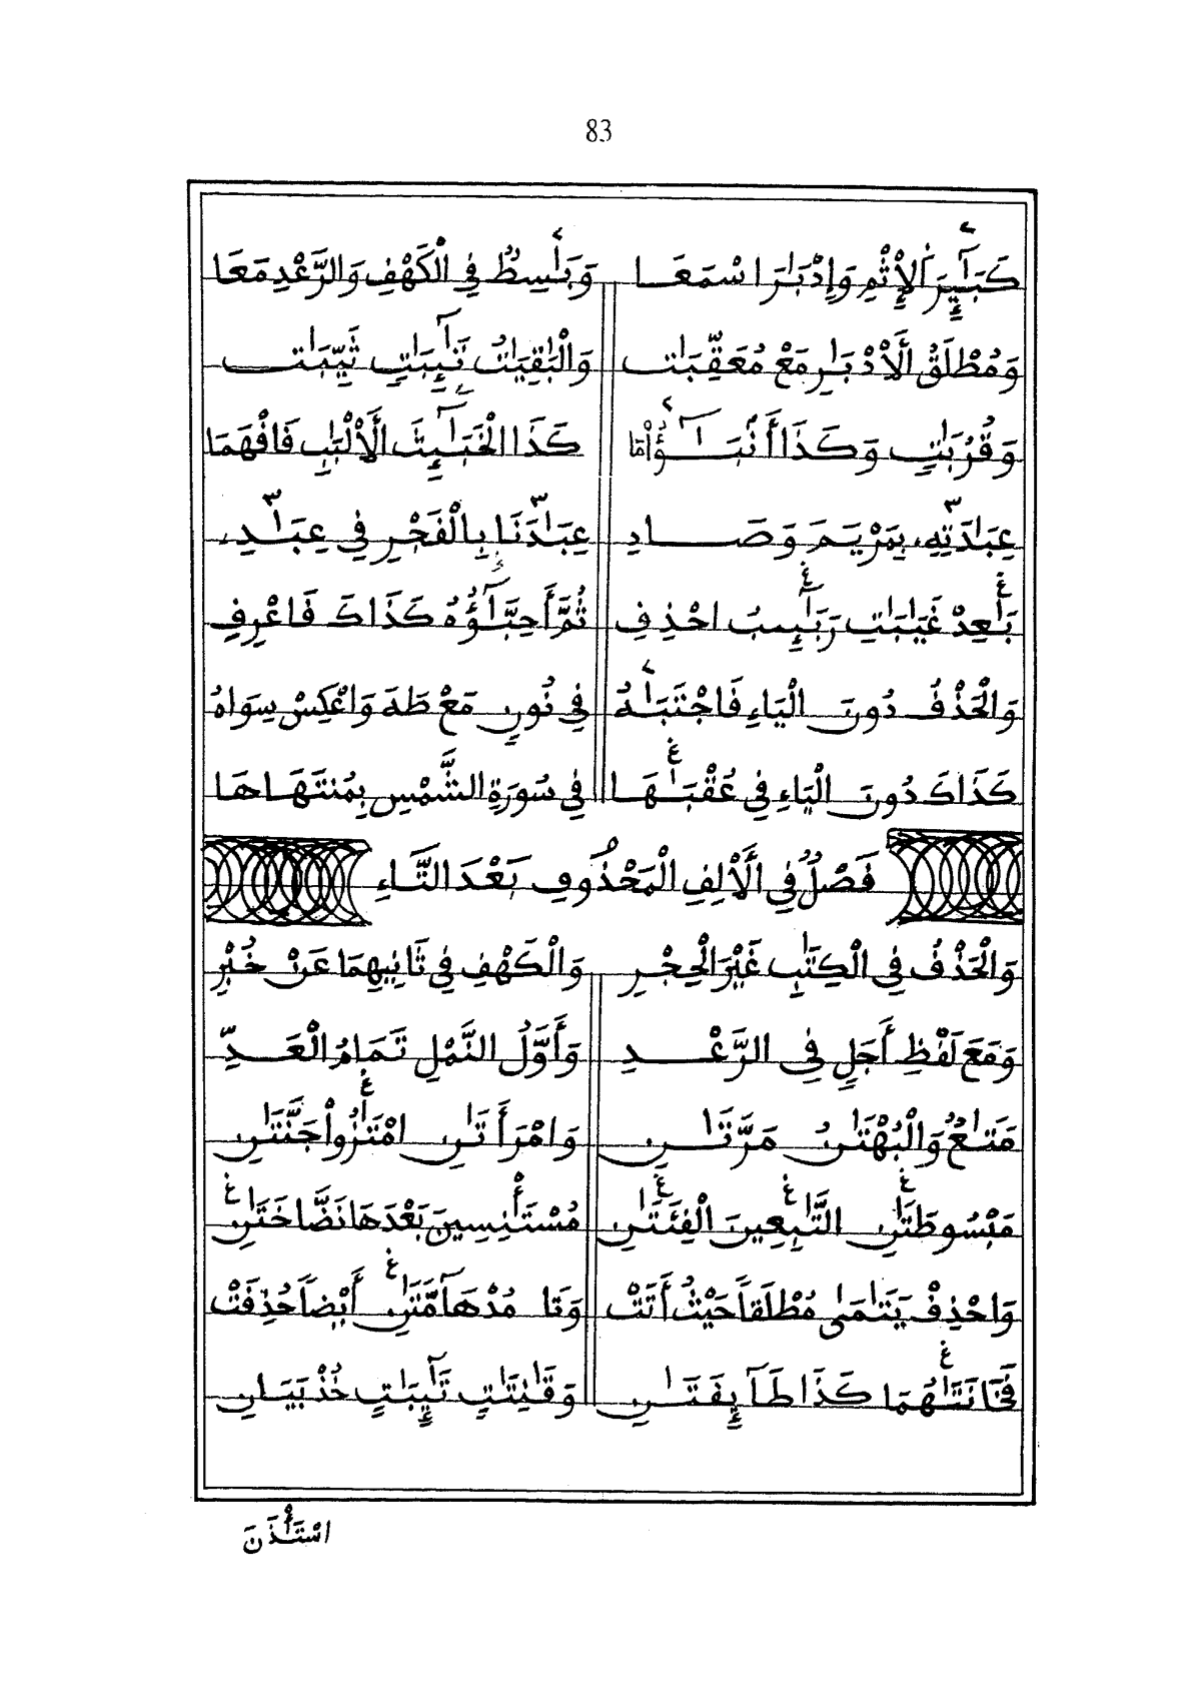 83
كَبَـٰٓئِرَ ٱلْإِثْمِ وَإِدْبَـٰرَ اسْمَعَا وَبَـٰسِطُ فِي الْكَهْفِ وَالرَّعْدِ مَعَا
وَمُطْلَقُ الَادْبَـٰرِ مَعْ مُعَقِّبَـٰت وَالْبَـٰقِيَـٰتُ تَـٰٓئِبَـٰتٍ ثَيِّبَـٰت
وَقُرُبَـٰتٍ وَكَذَا أَنۢبَـٰٓؤُاْ مَا كَذَا الْخَبَـٰٓئِثَ الَالْبَـٰبِ فَافْهَمَا
عِبَـٰدَتِهِ بِمَرْيَمَ وَصَادِ عِبَـٰدَنَا بِالْفَجْرِ فِي عِبَـٰدِ
بَـٰعِدْ غَيَـٰبَـٰتِ رَبَـٰٓئِبُ احْذِفِ ثُمَّ أَحِبَّـٰٓؤُهُ كَذَاكَ فَاعْرِفِ
وَالْحَذْفُ دُونَ الْيَاءِ فَاجْتَبَـٰهُ فِي نُونِ مَعْ طَهَ وَاعْكِسْ سِوَاهُ
كَذَاكَ دُونَ الْيَاءِ فِي عُقْبَـٰهَا فِي سُورَةِ الشَّمْسِ بِمُنتَهَاهَا
فَصْلٌ فِي الَالِفِ الْمَحْذُوفِ بَعْدَ التَّاءِ
وَالْحَذْفُ فِي الْكِتَـٰبِ غَيْرَ الْحِجْرِ وَالْكَهْفِ فِي ثَانِيهِمَا عَنْ خُبْرِ
وَمَعَ لَفْظِ أَجَلٍ فِي الرَّعْدِ وَأَوَّلُ النَّمْلِ تَمَامُ الْعَدِّ
مَتَـٰعُ وَالْبُهْتَـٰنُ مَرَّتَـٰنِ وَامْرَأَتَـٰنِ امْتَـٰزُواْ جَنَّتَـٰنِ
مَبْسُوطَتَـٰنِ التَّـٰبِعِينَ الْفِئَتَـٰنِ مُسْتَـْٔنِسِينَ بَعْدَهَا نَضَّاخَتَـٰنِ
وَاحْذِفْ يَتَـٰمَىٰ مُطْلَقاً حَيْثُ أَتَتْ وَتَا مُدْهَآمَّتَـٰنِ أَيْضاً حُذِفَتْ
فَخَانَتَـٰهُمَا كَذَا طَآئِفَتَـٰنِ وَقَـٰنِتَـٰتٍ تَـٰٓئِبَـٰتٍ خُذْ بَيَـانِ
اسْتَـْٔذَنَ